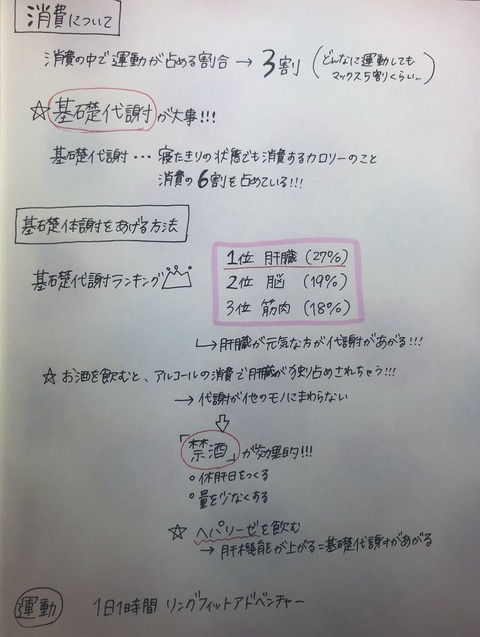 消費について
消費の中で運動が占める割合 → 3割 (どんなに運動しても
マックス5割くらい…)
☆ 基礎代謝が大事!!!
基礎代謝・・・寝たきりの状態でも消費するカロリーのこと
消費の6割を占めている!!!
基礎体謝をあげる方法
基礎代謝ランキング
1位 肝臓 (27%)
2位 脳 (19%)
3位 筋肉 (18%)
↳ 肝臓が元気な方が代謝があがる!!!
☆ お酒を飲むと、アルコールの消費で肝臓が独り占めされちゃう!!!
→ 代謝が他のモノにまわらない
⇩
「禁酒」が効果的!!!
○休肝日をつくる
○量を少なくする
☆ ヘパリーゼを飲む
→ 肝機能が上がる=基礎代謝があがる
運動 1日1時間 リングフィットアドベンチャー